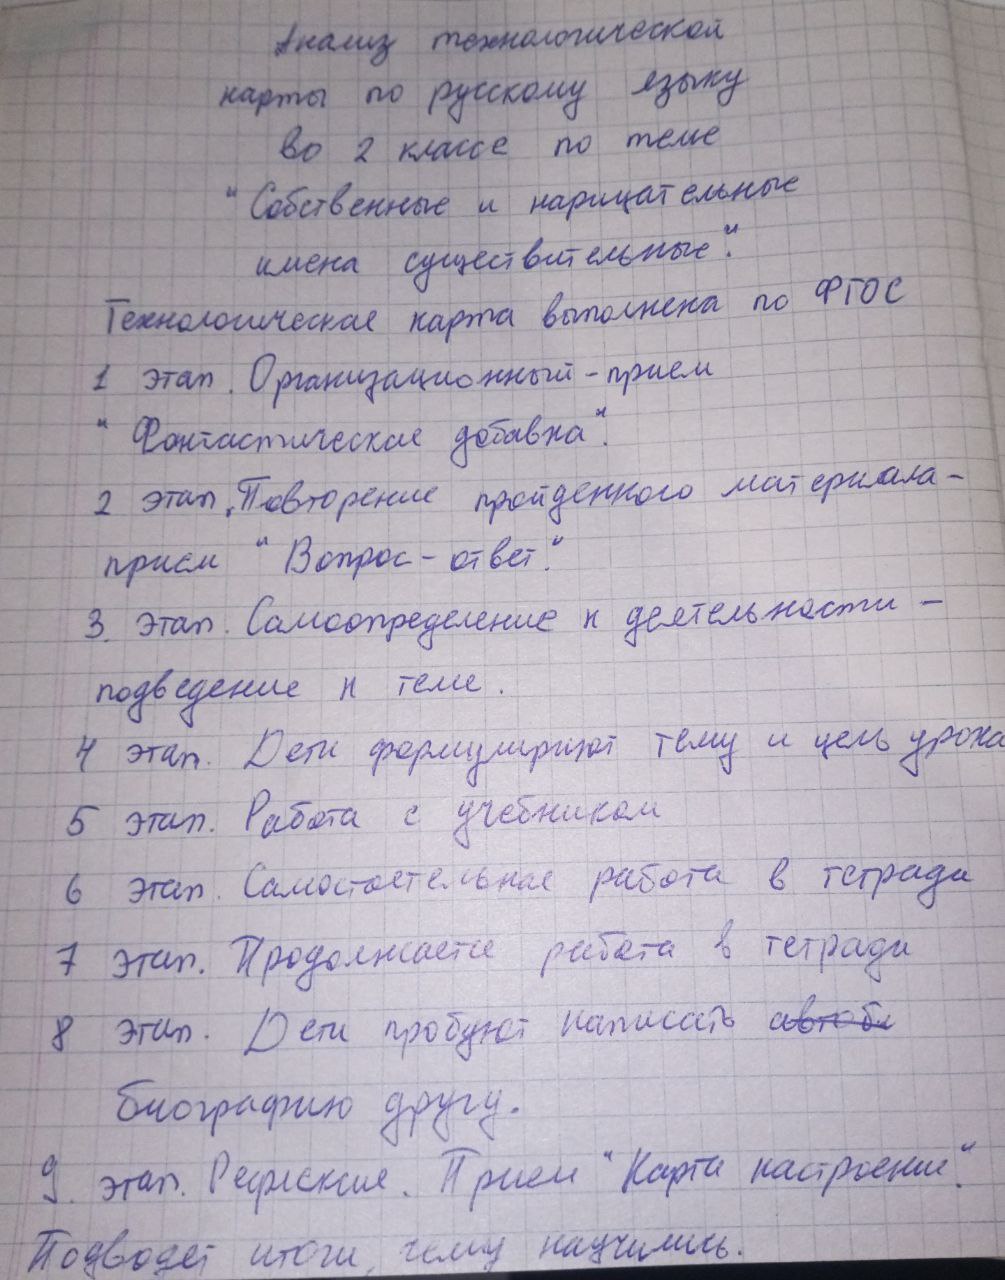 Анализ технологической
карты по русскому языку
во 2 классе по теме
"Собственные и нарицательные
имена существительные".
Технологическая карта выполнена по ФГОС
1 этап. Организационный - прием
"Фантастическая добавка".
2 этап. Повторение пройденного материала -
прием "Вопрос - ответ".
3. этап. Самоопределение к деятельности -
подведение к теме.
4 этап. Дети формулируют тему и цель урока
5 этап. Работа с учебником
6 этап. Самостоятельная работа в тетради
7 этап. Продолжается работа в тетради
8 этап. Дети пробуют написать автоби
биографию другу.
9. этап. Рефлексия. Прием "Карта настроения".
Подводят итоги, чему научились.